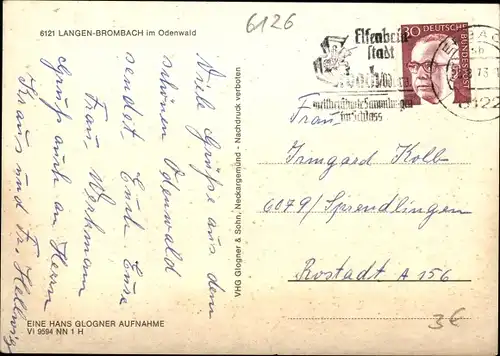 6121 LANGEN-BROMBACH im Odenwald
6126
Viele Grüße aus dem
schönen Odenwald
sendet Euch Eure
Frau Werkmann
Gruß auch an Herrn
Kraus und Fr. Hellwig
VHG Glogner & Sohn, Neckargemünd - Nachdruck verboten
EINE HANS GLOGNER AUFNAHME
Vi 9594 NN 1 H
Elfenbein-
stadt
weltberühmte Sammlungen
im Schloss
30 DEUTSCHE
BUNDESPOST
6122
Frau
Irmgard Kolb
6079/Sprendlingen
Rostadt A 156
3€